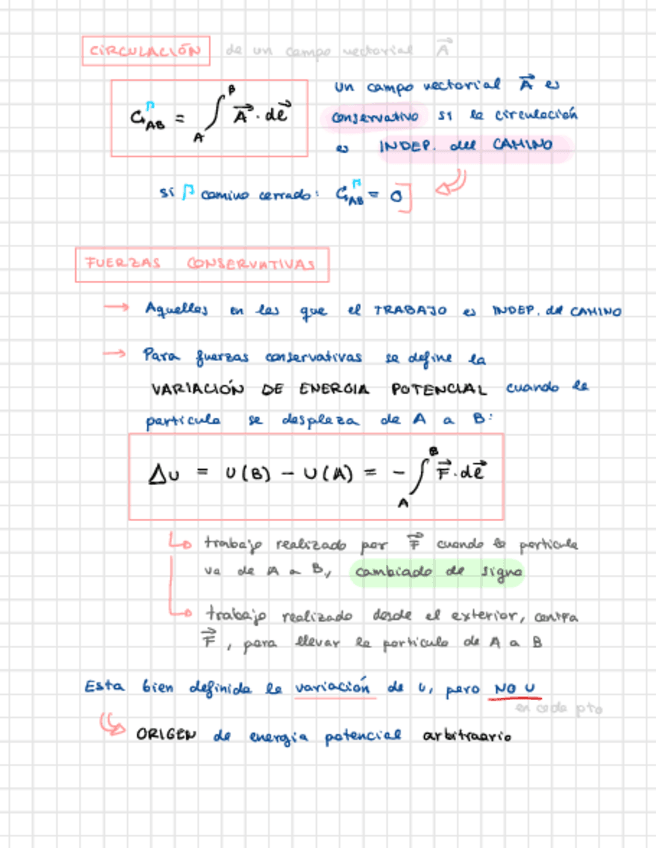 CIRCULACIÓN de un campo vectorial A⃗
C_AB^Γ = ∫_A^B A⃗ · dℓ⃗
Un campo vectorial A⃗ es
conservativo si la circulación
es INDEP. del CAMINO
Si Γ camino cerrado: C_AB^Γ = 0
FUERZAS CONSERVATIVAS
→ Aquellas en las que el TRABAJO es INDEP. del CAMINO
→ Para fuerzas conservativas se define la
VARIACIÓN DE ENERGIA POTENCIAL cuando la
particula se desplaza de A a B:
ΔU = U(B) − U(A) = − ∫_A^B F⃗ · dℓ⃗
trabajo realizado por F⃗ cuando la particula
va de A a B, cambiado de signo
trabajo realizado desde el exterior, contra
F⃗, para llevar la particula de A a B
Esta bien definida la variación de U, pero NO U
en cada pto
ORIGEN de energia potencial arbitraario